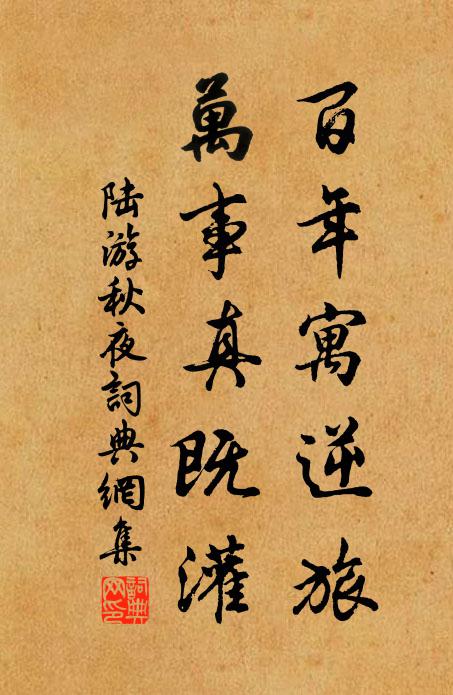 百年寓逆旅
萬事真既灌
陸游秋夜詞典網集
詞典
网印